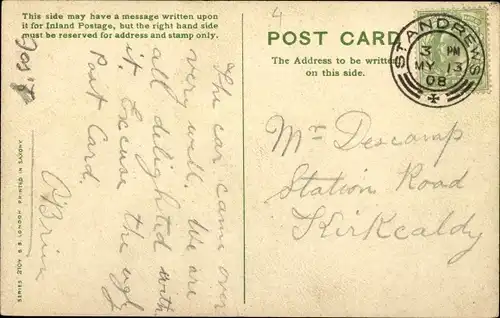 This side may have a message written upon
it for Inland Postage, but the right hand side
must be reserved for address and stamp only.
The car came over
very well. We are
all delighted with
it. Excuse the ugly
Post Card.
O'Brien
SERIES 2104. B.B. LONDON. PRINTED IN SAXONY.
4
POST CARD
The Address to be written
on this side.
ST ANDREWS
3 PM
MY 13
08
Mr Descamp
Station Road
Kirkcaldy